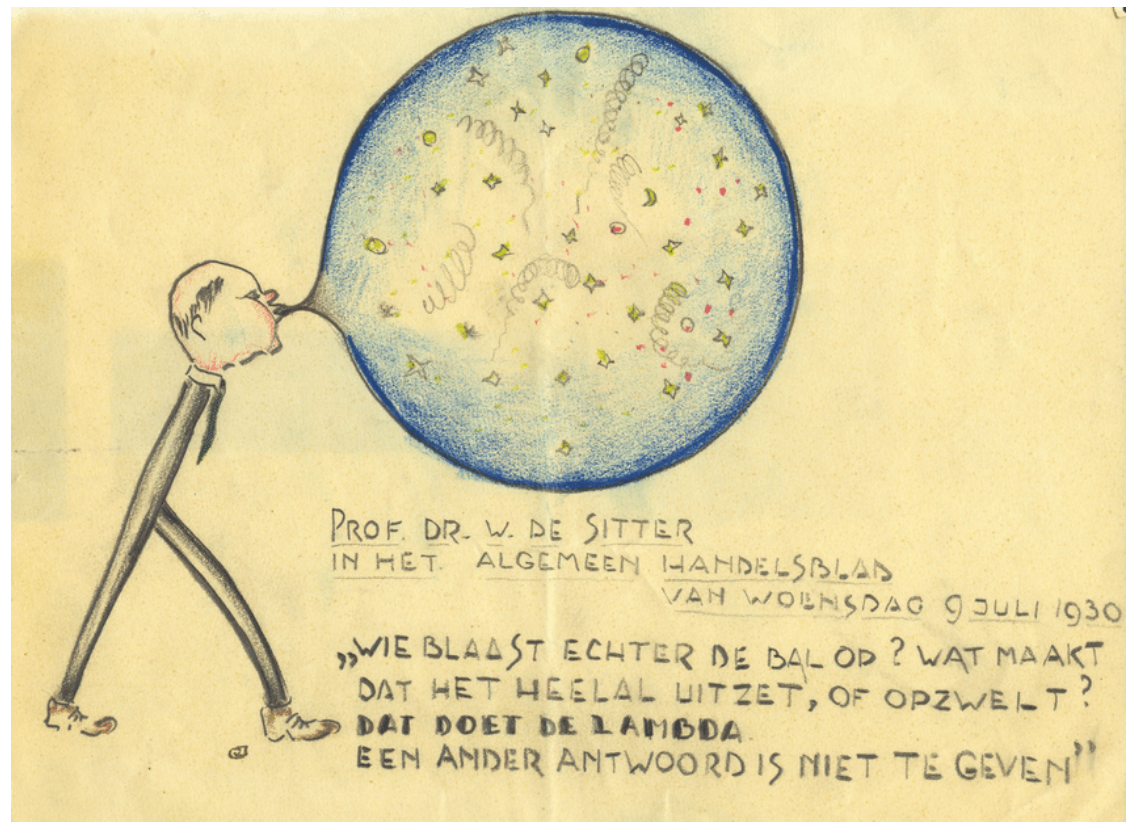 PROF. DR. W. DE SITTER
IN HET. ALGEMEEN HANDELSBLAD
VAN WOENSDAG 9 JULI 1930
„WIE BLAAST ECHTER DE BAL OP? WAT MAAKT
DAT HET HEELAL UITZET, OF OPZWELT?
DAT DOET DE LAMBDA.
EEN ANDER ANTWOORD IS NIET TE GEVEN”